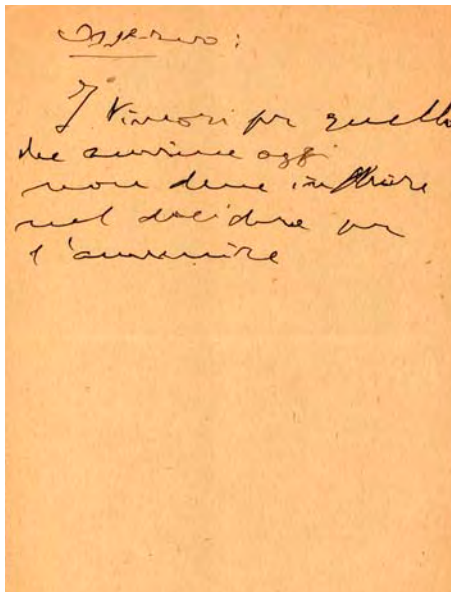 Osservo:
I timori per quello
che avviene oggi
non deve influire
nel decidere per
l'avvenire